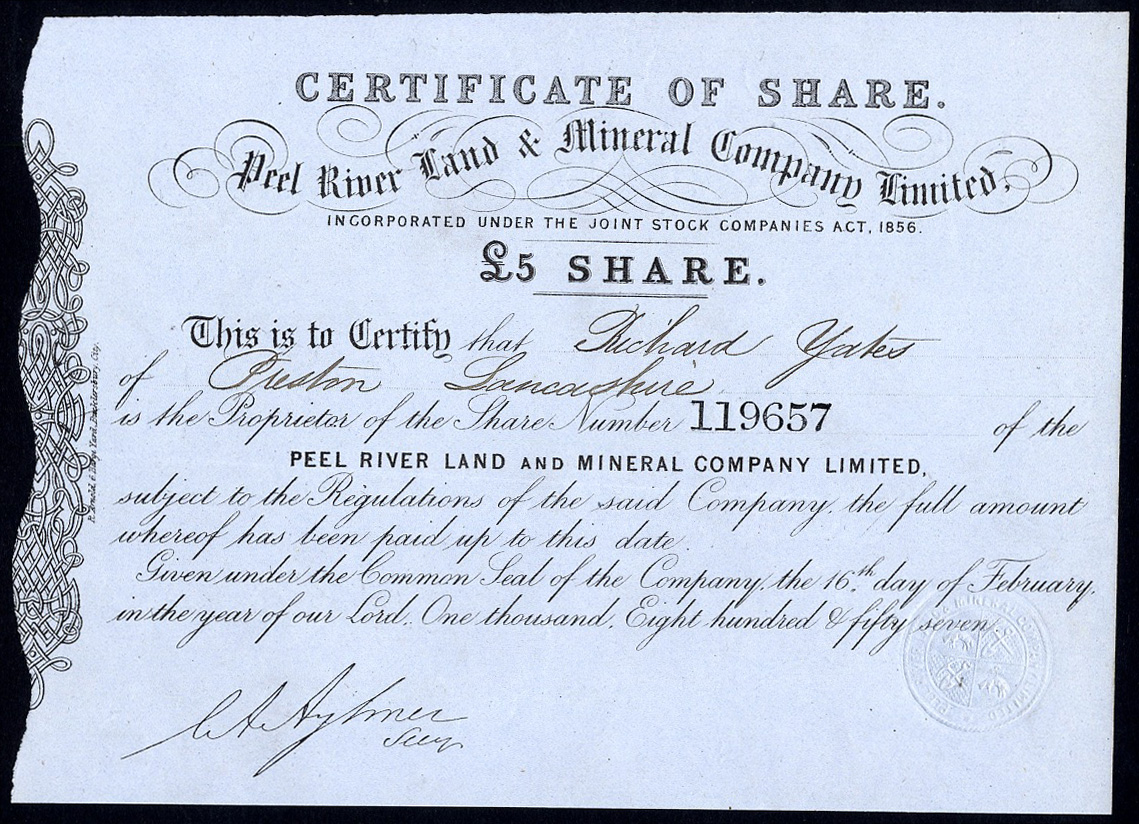 CERTIFICATE OF SHARE.
Peel River Land & Mineral Company Limited,
INCORPORATED UNDER THE JOINT STOCK COMPANIES ACT, 1856.
£5 SHARE.
This is to Certify that Richard Yates
of Preston Lancashire
is the Proprietor of the Share Number 119657 of the
PEEL RIVER LAND AND MINERAL COMPANY LIMITED,
subject to the Regulations of the said Company, the full amount
whereof has been paid up to this date.
Given under the Common Seal of the Company, the 16th day of February,
in the year of our Lord, One thousand, Eight hundred & fifty seven.
C A Aylmer
Secy
& MINERAL COMPANY LIMITED